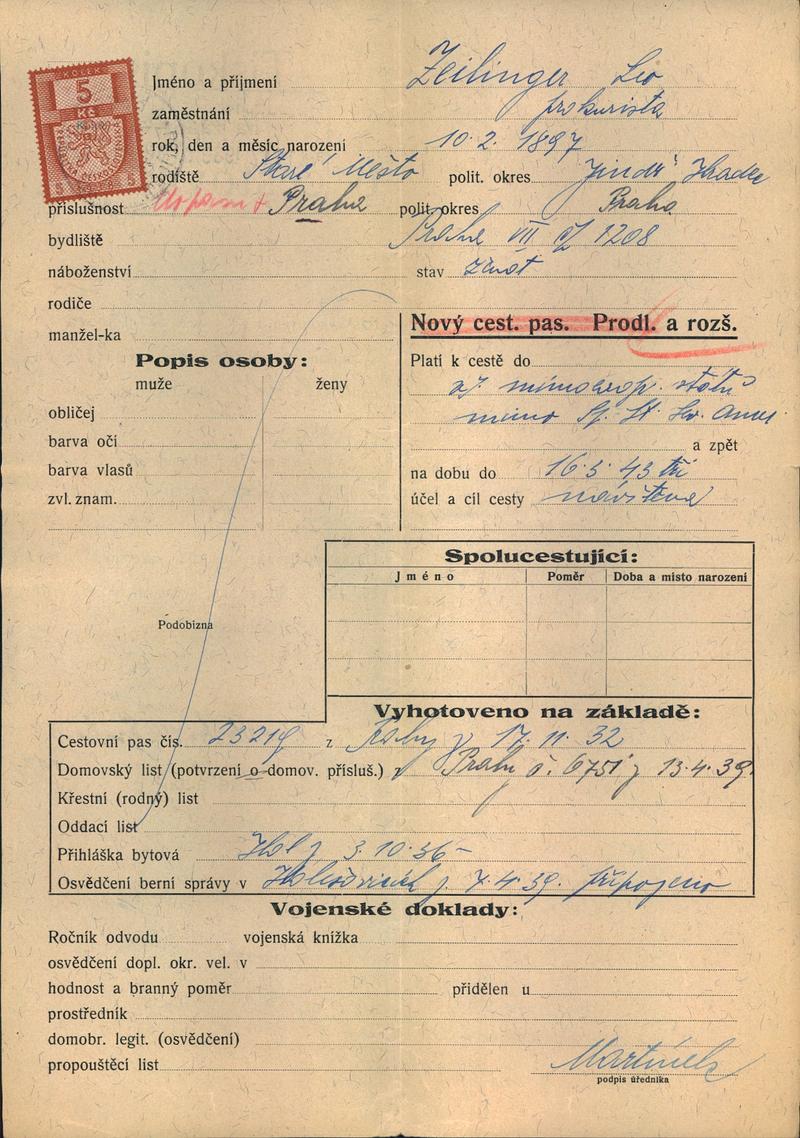 KOLEK
5
Kč
Jméno a příjmení Zeilinger Leo
zaměstnání prokurista
rok, den a měsíc narození 10. 2. 1897
rodiště Staré Město polit. okres Jindř. Hradec
příslušnost Praha polit. okres Praha
bydliště Praha VII 1208
náboženství stav ženat
rodiče
manžel-ka
Nový cest. pas. Prodl. a rozš.
Popis osoby:
muže ženy
obličej
barva očí
barva vlasů
zvl. znam.
Platí k cestě do
mimo
a zpět
na dobu do 16. 5. 43
účel a cíl cesty návštěva
Spolucestující:
Jméno Poměr Doba a místo narození
Podobizna
Vyhotoveno na základě:
Cestovní pas čís. 23219 z Prahy 17. 11. 32
Domovský list (potvrzení o domov. přísluš.) z Prahy č. 6751 z 13. 4. 39.
Křestní (rodný) list
Oddací list
Přihláška bytová 3. 10. 36
Osvědčení berní správy v Holešovicích z 7. 4. 39. připojeno
Vojenské doklady:
Ročník odvodu vojenská knížka
osvědčení dopl. okr. vel. v
hodnost a branný poměr přidělen u
prostředník
domobr. legit. (osvědčení)
propouštěcí list
podpis úředníka